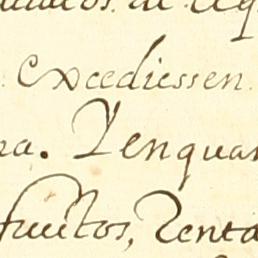 excediessen
ra. Y en quan
frutos, Renta